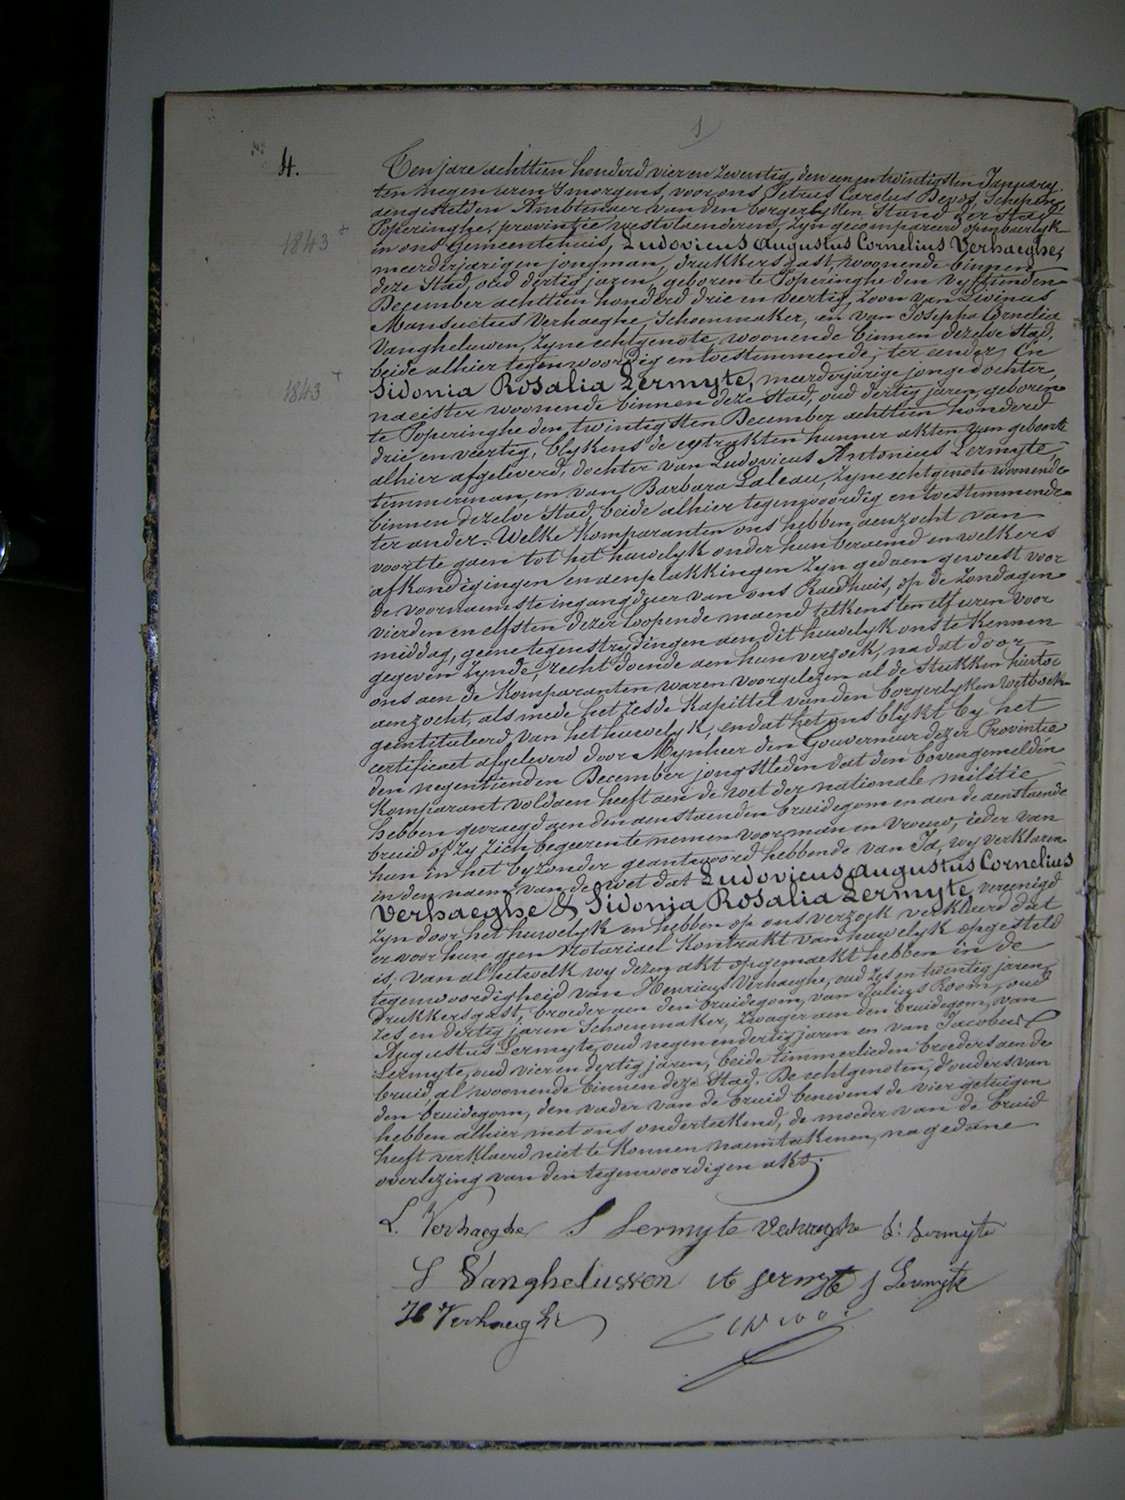 1
N° 4.
Ten jare achttien honderd vier en zeventig, den een en twintigsten January
ten negen uren 's morgens, voor ons, Petrus Carolus Devos, Schepene,
aengestelden Ambtenaer van den borgerlyken Stand der Stad
Poperinghe, provincie westvlaenderen, zyn gecompareerd openbaerlyk
1843 +
in ons Gemeentehuis, Ludovicus Augustus Cornelius Verhaeghe,
meerderjarigen jongman, drukkersgast, woonende binnen
deze Stad, oud dertig jaren, geboren te Poperinghe den vyftienden
December achttien honderd drie en veertig, zoon van Livinus
Mansuetus Verhaeghe, Schoenmaker, en van Josepha Cornelia
Vangheluwen, zyne echtgenote, woonende binnen dezelve Stad,
beide alhier tegenwoordig en toestemmende, ter eender, En
1843 +
Sidonia Rosalia Lermyte, meerderjarige jonge dochter,
naeister woonende binnen deze Stad, oud dertig jaren, geboren
te Poperinghe den twintigsten December achttien honderd
drie en veertig, blykens de extrakten hunner akten van geboorte
alhier afgeleverd, dochter van Ludovicus Antonius Lermyte,
timmerman, en van Barbara Laleau, zyne echtgenote woonende
binnen dezelve Stad, beide alhier tegenwoordig en toestemmende
ter ander. Welke Komparanten ons hebben aenzocht van
voort te gaen tot het huwelyk onder hun beraemd en welkers
afkondigingen en aenplakkingen zyn gedaen geweest voor
de voornaemste ingangdeur van ons Raedhuis, op de Zondagen
vierden en elfsten dezer loopende maend telkens ten elf uren voor
middag, geene tegenstrydingen aen dit huwelyk ons te kennen
gegeven zynde, recht doende aen hun verzoek, na dat door
ons aen de Komparanten waren voorgelezen al de Stukken hiertoe
aenzocht, als mede het zesde Kapittel van den borgerlyken Wetboek
geintituleerd van het huwelyk, en dat het ons blykt by het
certificaet afgeleverd door Mynheer den Gouverneur dezer Provintie
den negentienden December jongstleden dat den bovengemelden
Komparant voldaen heeft aen de wet der nationale militie
hebben gevraegd aen den aenstaenden bruidegom en aen de aenstaende
bruid of zy zich begeeren te nemen voor man en vrouw, ieder van
hun in het byzonder geantwoord hebbende van Ja, wy verklaren
in den naem van de wet dat Ludovicus Augustus Cornelius
Verhaeghe & Sidonia Rosalia Lermyte vereenigd
zyn door het huwelyk en hebben op ons verzoek verklaerd dat
er voor hun geen Notariael Kontrakt van huwelyk opgesteld
is, van al hetwelk wy dezen akt opgemaekt hebben in de
tegenwoordigheid van Henricus Verhaeghe, oud zes en twentig jaren,
drukkersgast, broeder aen den bruidegom, van Julius Room, oud
zes en dertig jaren Schoenmaker, zwager aen den bruidegom, van
Augustus Lermyte, oud negen en dertig jaren en van Jacobus
Lermyte, oud vier en dertig jaren, beide timmerlieden broeders aen de
bruid, al woonende binnen deze Stad. De echtgenoten, d'ouders van
den bruidegom, den vader van de bruid benevens de vier getuigen
hebben alhier met ons onderteekend, de moeder van de bruid
heeft verklaerd niet te konnen naemteekenen, na gedane
overlezing van den tegenwoordigen akt.
L. Verhaeghe S Lermyte Verhaeghe L: Lermyte
J Vangheluwen A Lermyte J Lermyte
H Verhaeghe